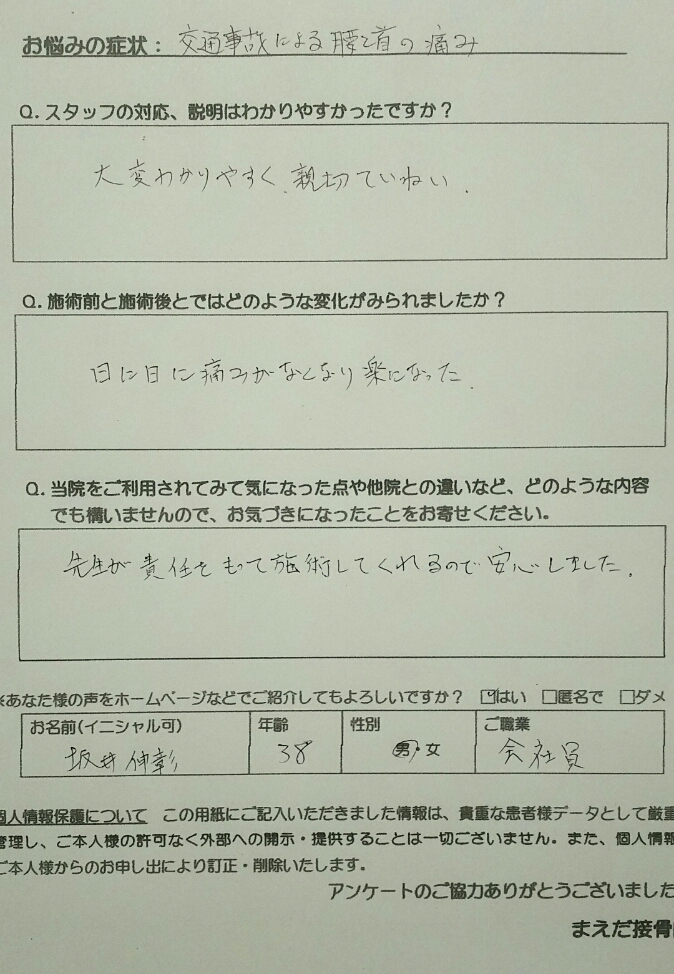 お悩みの症状: 交通事故による腰と首の痛み
Q. スタッフの対応、説明はわかりやすかったですか？
大変わかりやすく、親切ていねい.
Q. 施術前と施術後とではどのような変化がみられましたか？
日に日に痛みがなくなり楽になった.
Q. 当院をご利用されてみて気になった点や他院との違いなど、どのような内容
でも構いませんので、お気づきになったことをお寄せください。
先生が責任をもって施術してくれるので安心しました.
※あなた様の声をホームページなどでご紹介してもよろしいですか？ ☑はい □匿名で □ダメ
お名前(イニシャル可) 年齢 性別 ご職業
坂井伸彰 38 男・女 会社員
個人情報保護について この用紙にご記入いただきました情報は、貴重な患者様データとして厳重
管理し、ご本人様の許可なく外部への開示・提供することは一切ございません。また、個人情報
ご本人様からのお申し出により訂正・削除いたします。
アンケートのご協力ありがとうございました
まえだ接骨